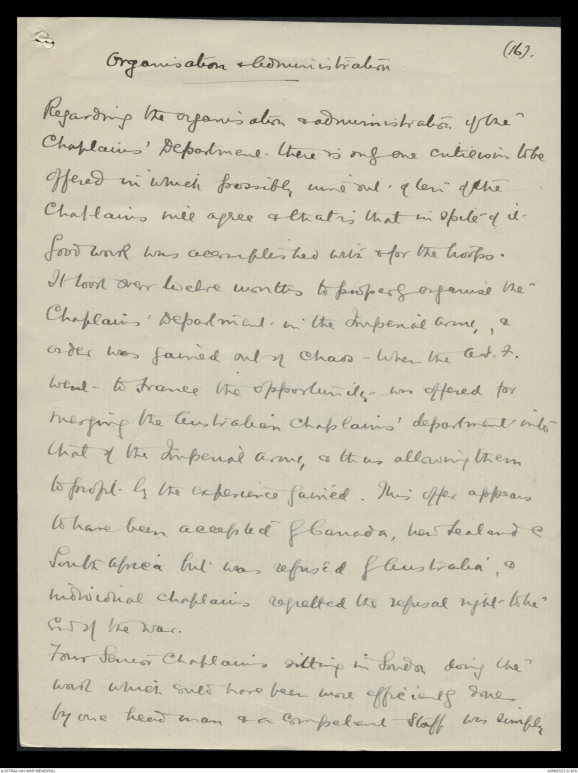 (16).
Organisation & Administration
Regarding the organisation & administration of the
Chaplains' Department. there is only one criticism to be
offered in which possibly nine out of ten of the
Chaplains will agree & that is that in spite of it
good work was accomplished with & for the troops.
It took over twelve months to properly organise the
Chaplains' Department in the Imperial Army, &
order was gained out of chaos - When the A.I.F.
went to France the opportunity was offered for
merging the Australian Chaplains' department into
that of the Imperial Army, & thus allowing them
to profit by the experience gained. This offer appears
to have been accepted by Canada, New Zealand &
South Africa but was refused by Australia, &
individual chaplains regretted the refusal right to the
End of the War.
Four Senior Chaplains sitting in London doing the
work which could have been more efficiently done
by one head man & a competent Staff was simply
AUSTRALIAN WAR MEMORIAL